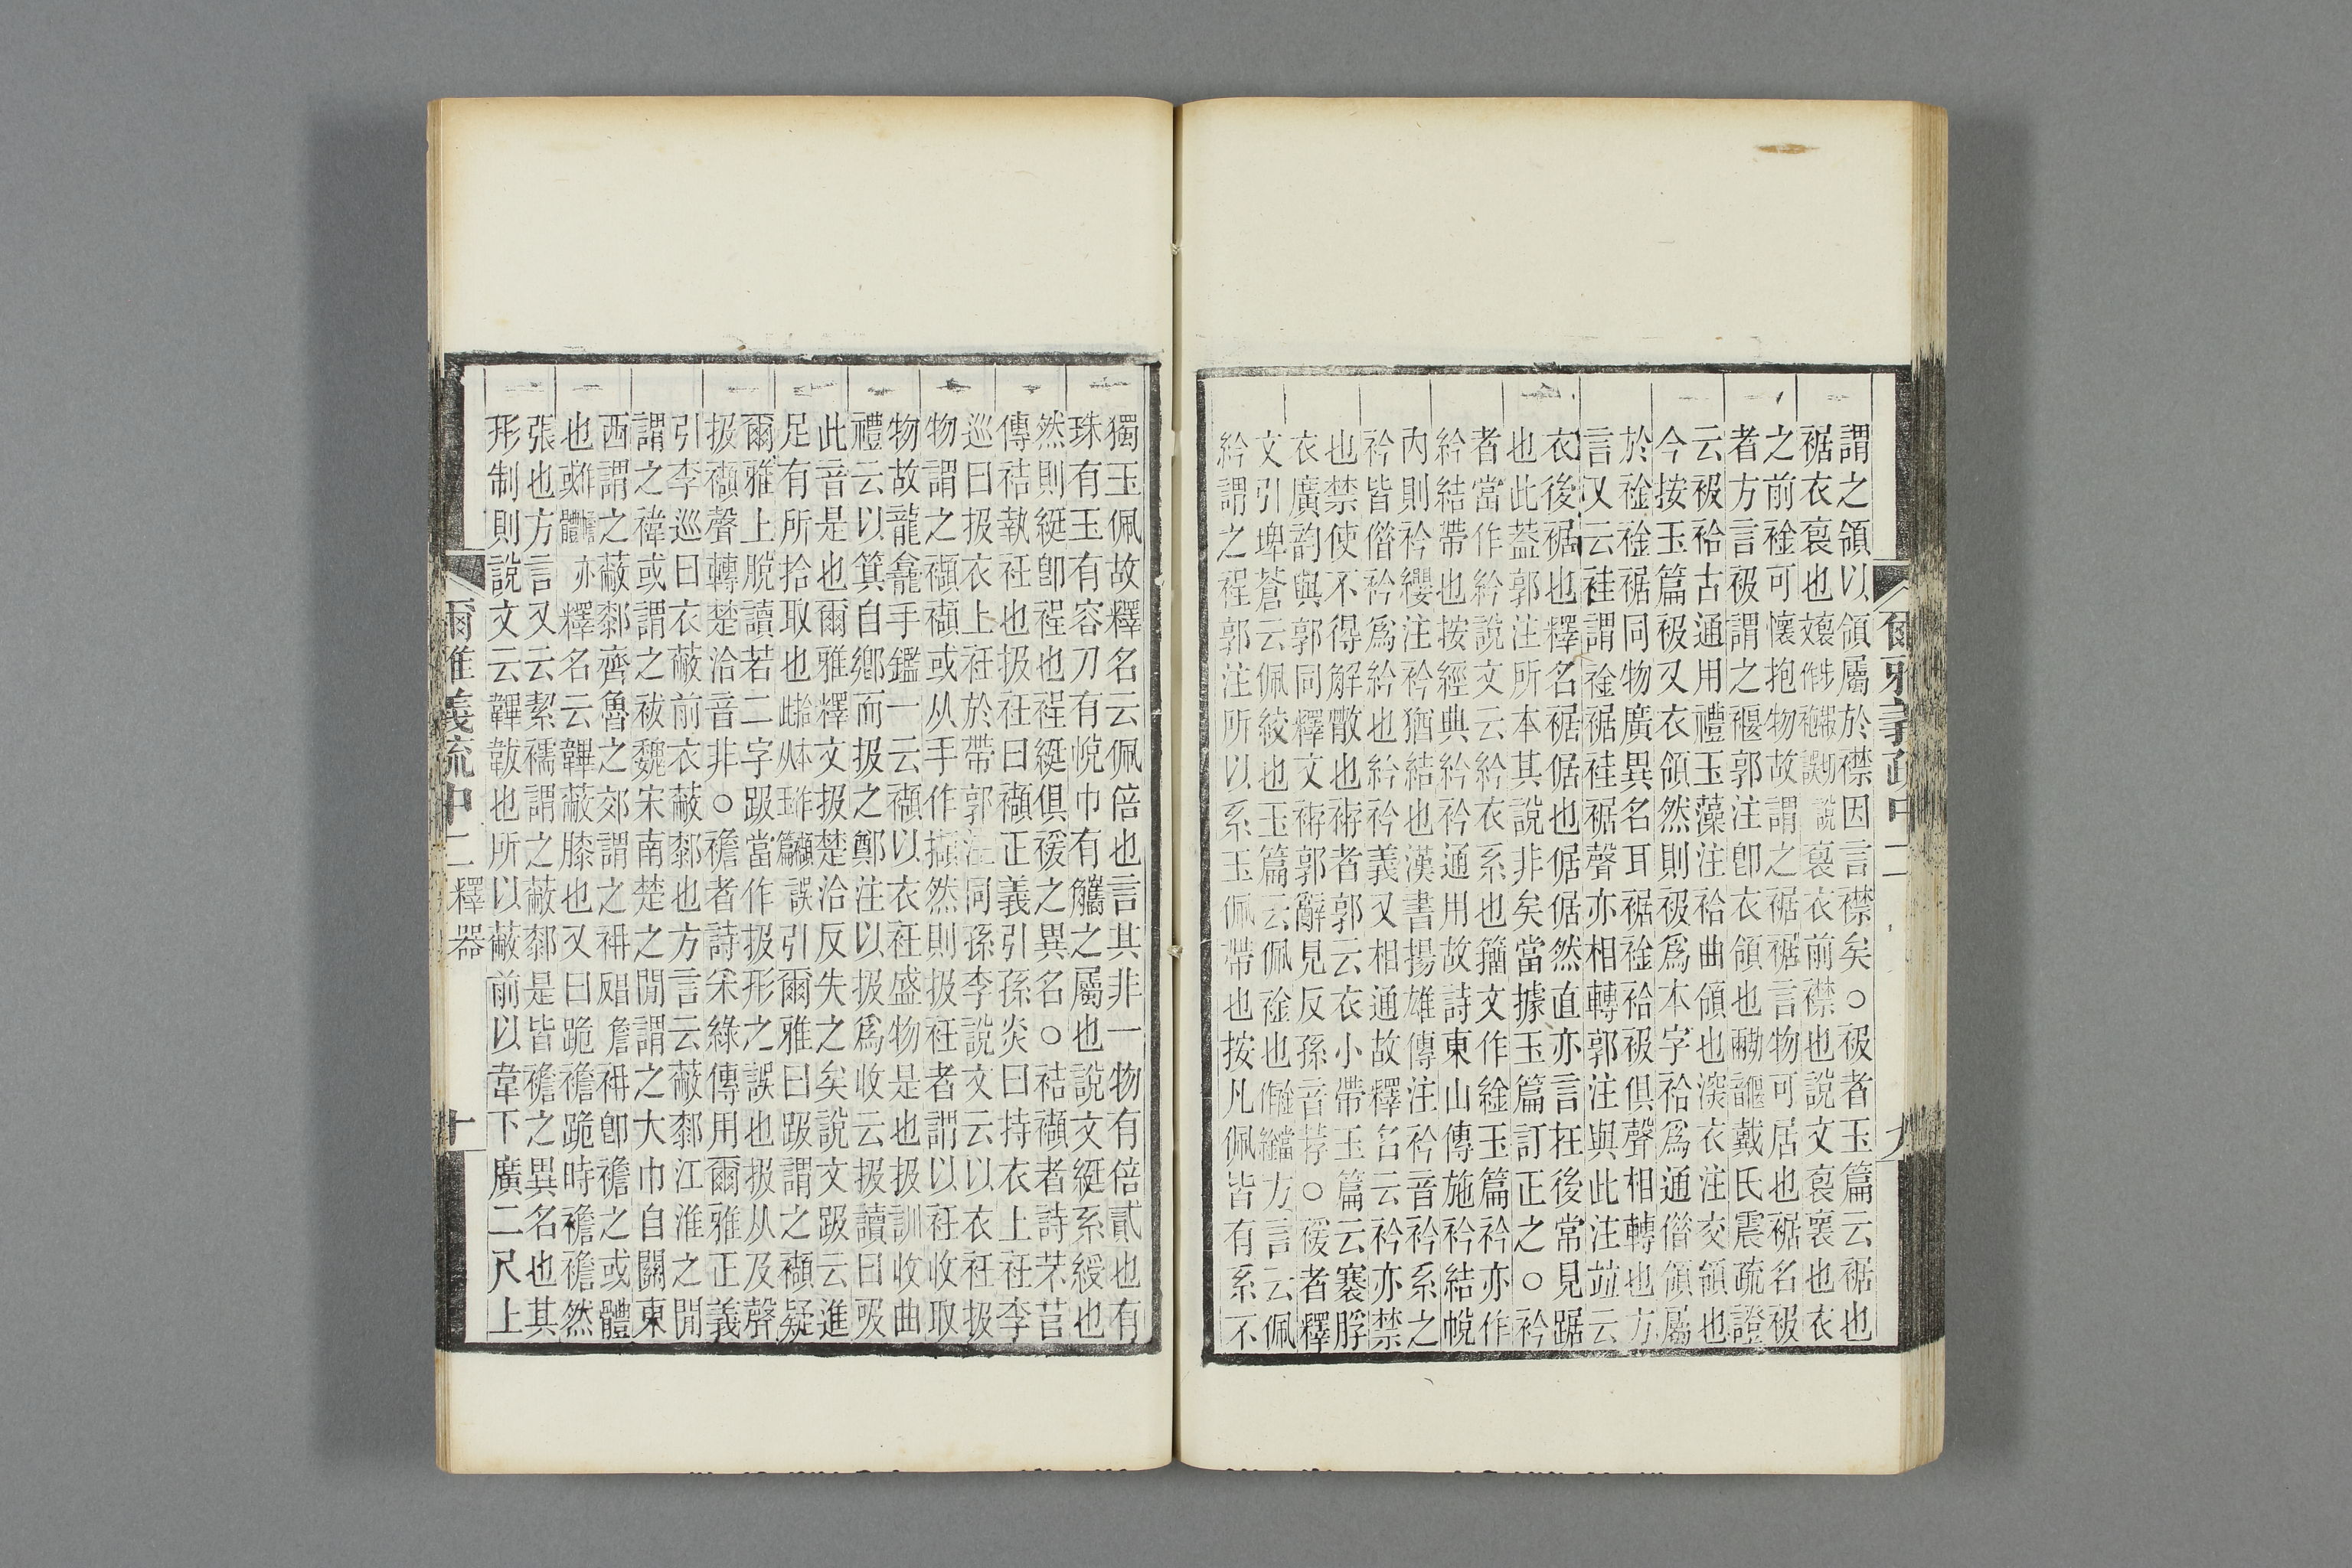 謂之領以領屬於襟因言襟矣○衱者玉篇云裾也
裾衣裒也裒步報切說裒衣前襟也說文裒褱也衣
之前䘳可懷抱物故謂之裾裾言物可居也裾名衱
者方言衱謂之褗郭注卽衣領也戴氏震疏證
云衱袷古通用禮玉藻注袷曲領也深衣注交領也
今按玉篇衱又衣領然則衱爲本字袷爲通借領屬
於䘳䘳裾同物廣異名耳裾䘳袷衱俱聲相轉也方
言又云袿謂䘳裾袿裾聲亦相轉郭注與此注竝云
衣後裾也釋名裾倨也倨倨然直亦言在後常見踞
也此蓋郭注所本其說非矣當據玉篇訂正之○衿
者當作紟說文云紟衣系也籒文作䋮玉篇衿亦作
紟結帶也按經典紟衿通用故詩東山傳施衿結帨
內則衿纓注衿猶結也漢書揚雄傳注衿音衿系之
衿皆借衿爲紟也紟衿義又相通故釋名云衿亦禁
也禁使不得解散也袸者郭云衣小帶玉篇云褰脬
衣廣韵與郭同釋文袸郭辭見反孫音荐○褑者釋
文引埤蒼云佩絞也玉篇云佩䘳也方言云佩
紟謂之裎郭注所以系玉佩帶也按凡佩皆有系不
獨玉佩故釋名云佩倍也言其非一物有倍貳也有
珠有玉有容刀有帨巾有觿之屬也說文綎系綬也
然則綎卽裎也裎綎俱褑之異名○袺襭者詩芣苢
傳袺執衽也扱衽曰襭正義引孫炎曰持衣上衽李
巡曰扱衣上衽於帶郭注同孫李說文云以衣衽扱
物謂之襭襭或从手作擷然則扱衽者謂以衽收取
物故龍龕手鑑一云襭以衣衽盛物是也扱訓收曲
禮云以箕自鄉而扱之鄭注以扱爲收云扱讀曰吸
此音是也爾雅釋文扱楚洽反失之矣說文趿云進
足有所拾取也引爾雅曰趿謂之襭疑
爾雅上脫讀若二字趿當作扱形之誤也扱从及聲
扱襭聲轉楚洽音非○襜者詩采綠傳用爾雅正義
引李巡曰衣蔽前衣蔽厀也方言云蔽厀江淮之閒
謂之褘或謂之袚魏宋南楚之閒謂之大巾自關東
西謂之蔽厀齊魯之郊謂之袡襜卽襜之或體
也釋名云韠蔽膝也又曰跪襜跪時襜襜然
張也方言又云絜襦謂之蔽厀是皆襜之異名也其
形制則說文云韠韍也所以蔽前以韋下廣二尺上
爾雅義疏中二
九
爾雅義疏中二釋器
十